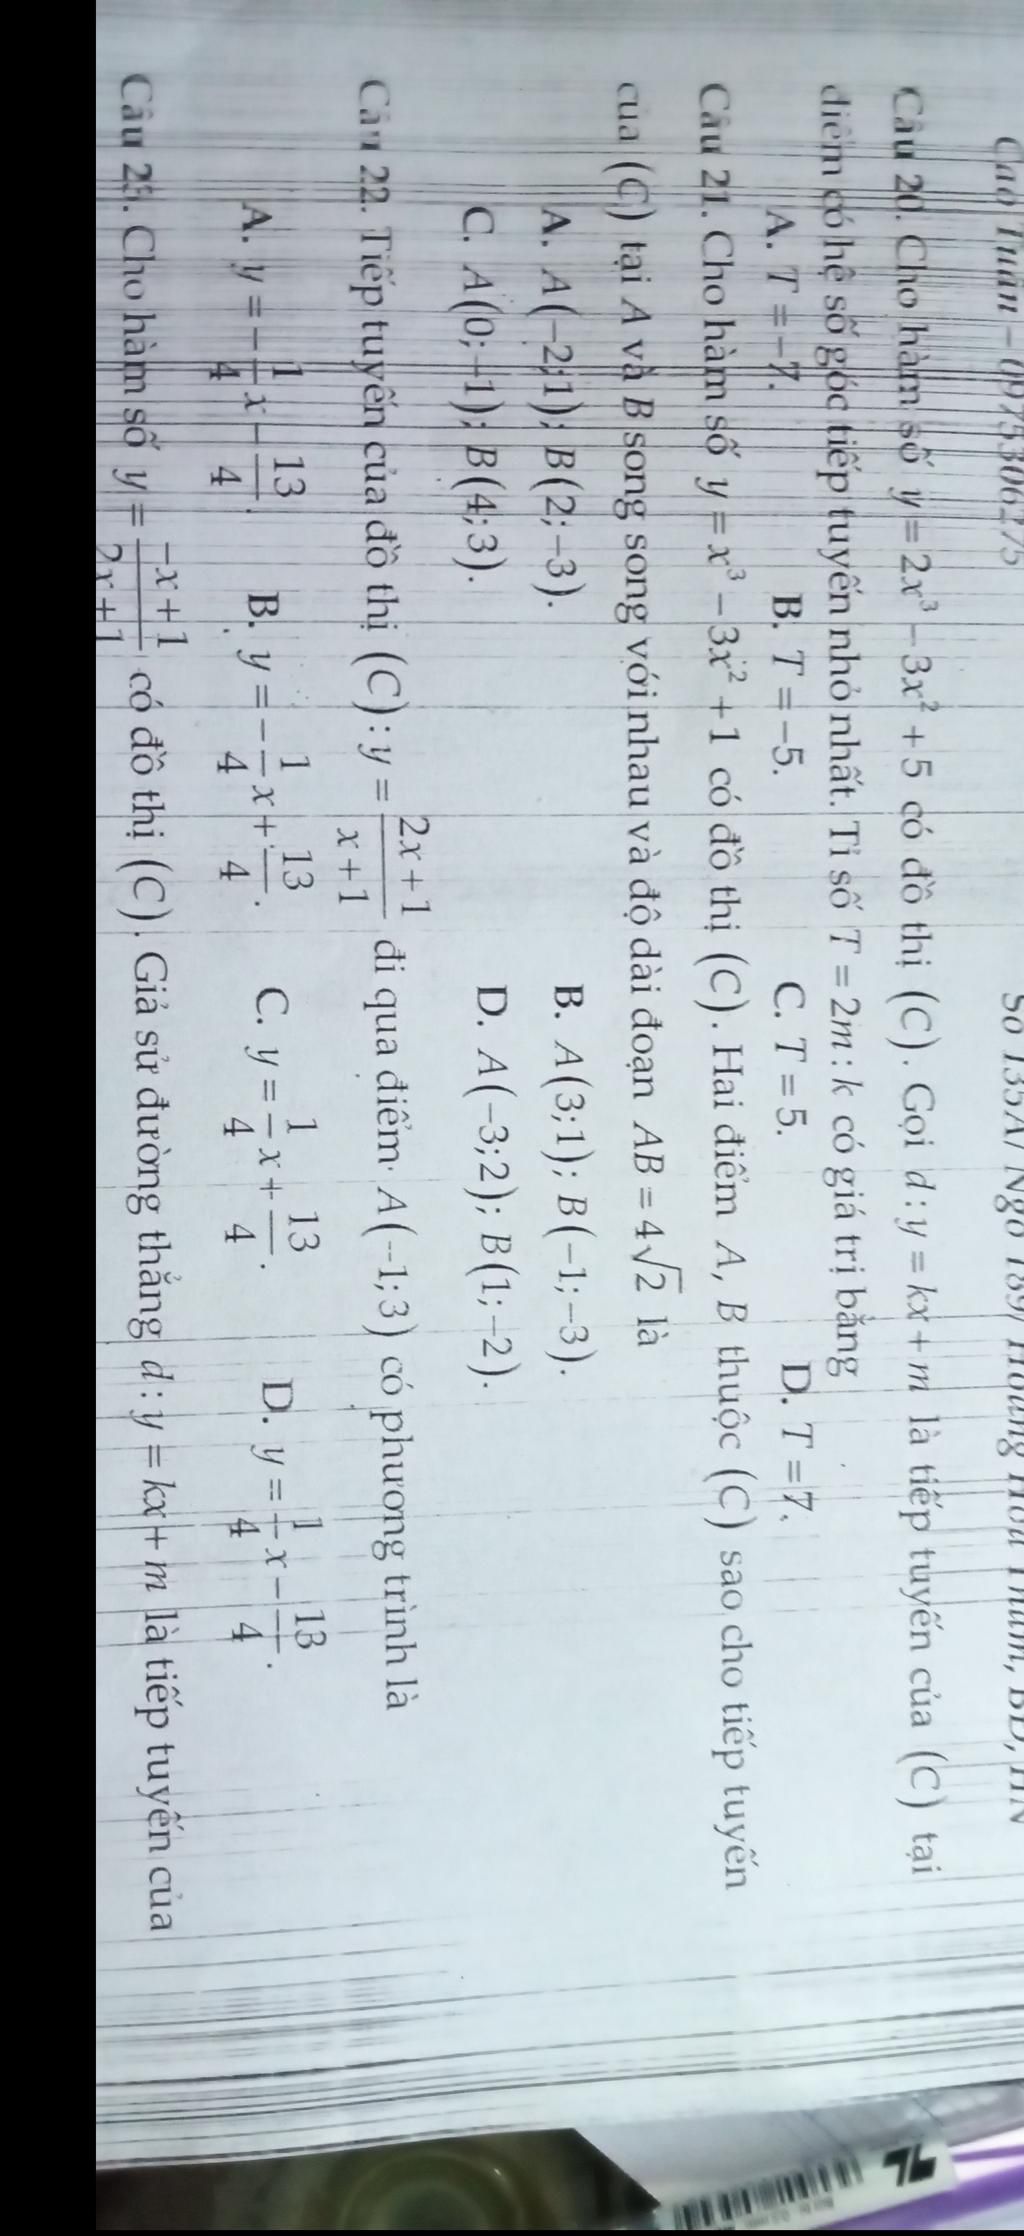 Cao Tuấn – 0975306275 Số 135A/ Ngõ 189/ Hoàng Hoa Thám, BĐ, HN
Câu 20. Cho hàm số y = 2x³ − 3x² + 5 có đồ thị (C). Gọi d : y = kx + m là tiếp tuyến của (C) tại
điểm có hệ số góc tiếp tuyến nhỏ nhất. Tỉ số T = 2m : k có giá trị bằng
A. T = −7. B. T = −5. C. T = 5. D. T = 7.
Câu 21. Cho hàm số y = x³ − 3x² + 1 có đồ thị (C). Hai điểm A, B thuộc (C) sao cho tiếp tuyến
của (C) tại A và B song song với nhau và độ dài đoạn AB = 4√2 là
A. A(−2;1); B(2;−3). B. A(3;1); B(−1;−3).
C. A(0;−1); B(4;3). D. A(−3;2); B(1;−2).
Câu 22. Tiếp tuyến của đồ thị (C) : y = (2x + 1)/(x + 1) đi qua điểm A(−1;3) có phương trình là
A. y = −1/4 x − 13/4. B. y = −1/4 x + 13/4. C. y = 1/4 x + 13/4. D. y = 1/4 x − 13/4.
Câu 23. Cho hàm số y = (−x + 1)/(2x + 1) có đồ thị (C). Giả sử đường thẳng d : y = kx + m là tiếp tuyến của
TL